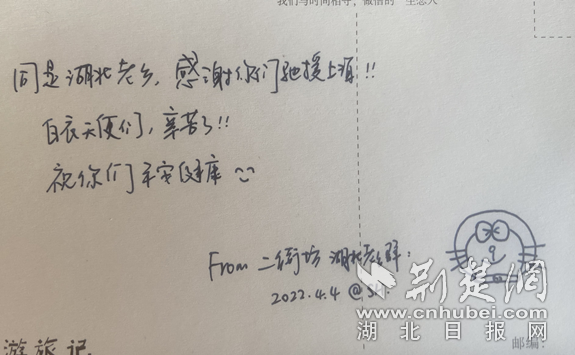 同是湖北老乡，感谢你们驰援上海!!
白衣天使们，辛苦了!!
祝你们平安健康
From 二街坊 湖北老乡群：
2022.4.4 @SH.
荆楚网
www.cnhubei.com
湖北日报网
邮编：
游旅记